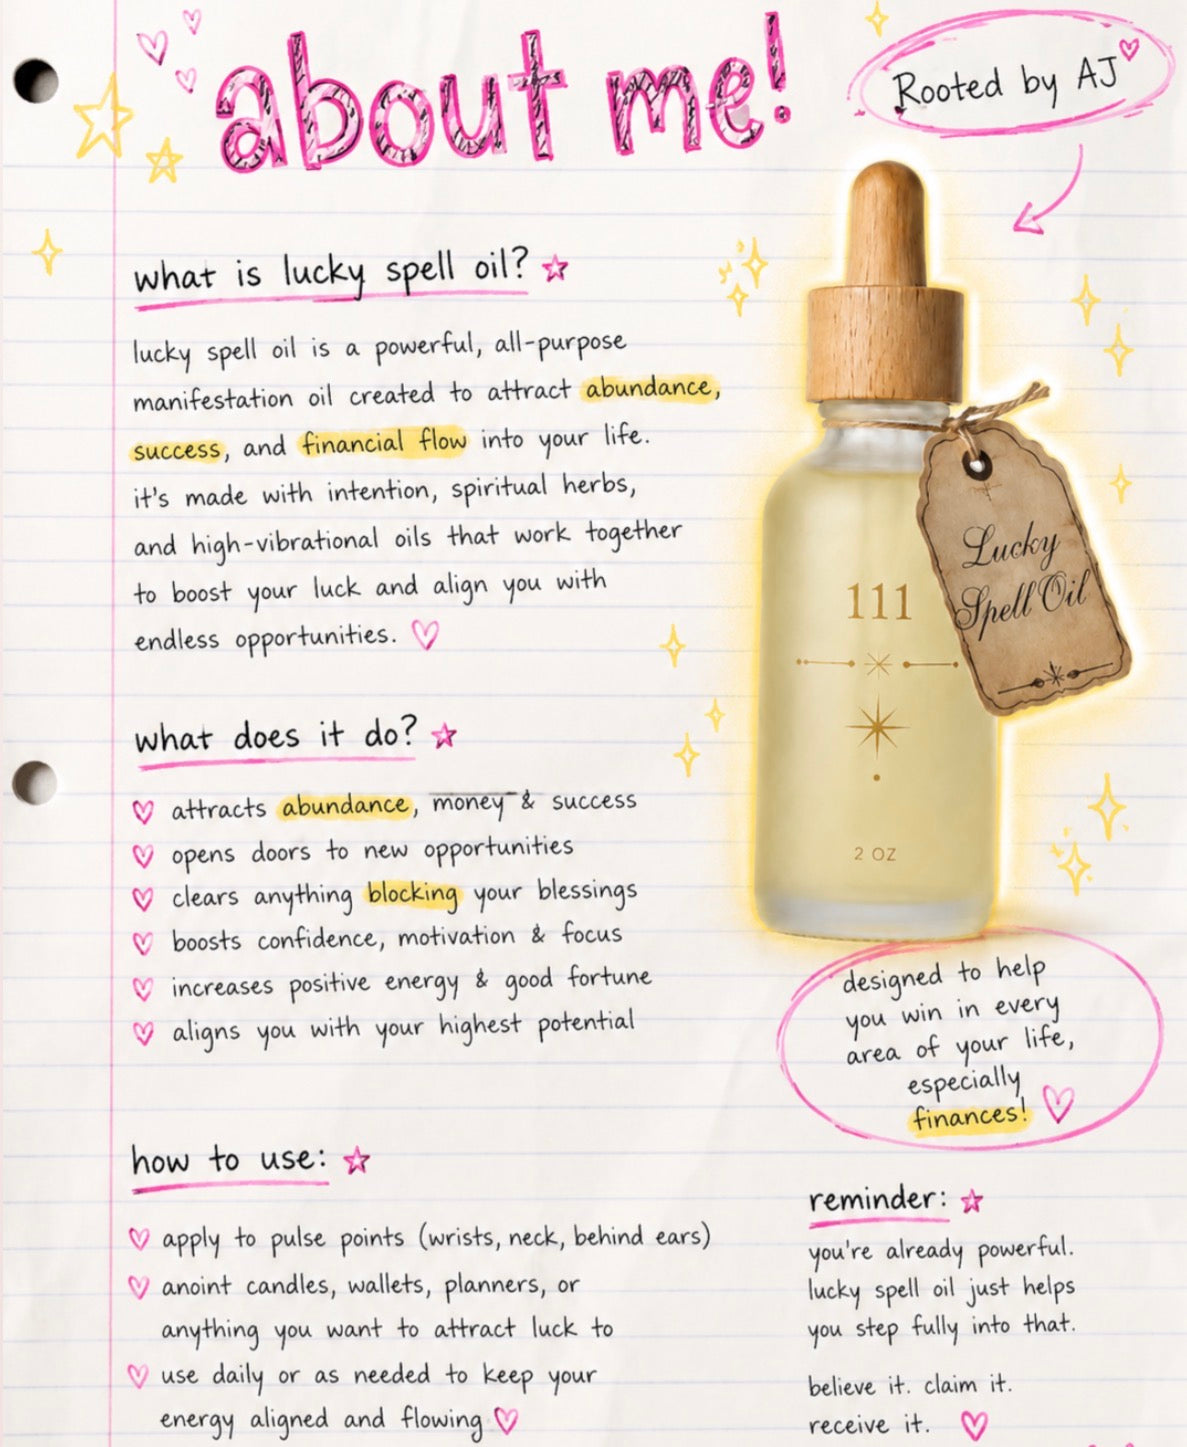 about me!
Rooted by AJ
what is lucky spell oil?
lucky spell oil is a powerful, all-purpose
manifestation oil created to attract abundance,
success, and financial flow into your life.
it's made with intention, spiritual herbs,
and high-vibrational oils that work together
to boost your luck and align you with
endless opportunities.
Lucky
Spell Oil
111
2 OZ
what does it do?
attracts abundance, money & success
opens doors to new opportunities
clears anything blocking your blessings
boosts confidence, motivation & focus
increases positive energy & good fortune
aligns you with your highest potential
designed to help
you win in every
area of your life,
especially
finances!
how to use:
apply to pulse points (wrists, neck, behind ears)
anoint candles, wallets, planners, or
anything you want to attract luck to
use daily or as needed to keep your
energy aligned and flowing
reminder:
you're already powerful.
lucky spell oil just helps
you step fully into that.
believe it. claim it.
receive it.